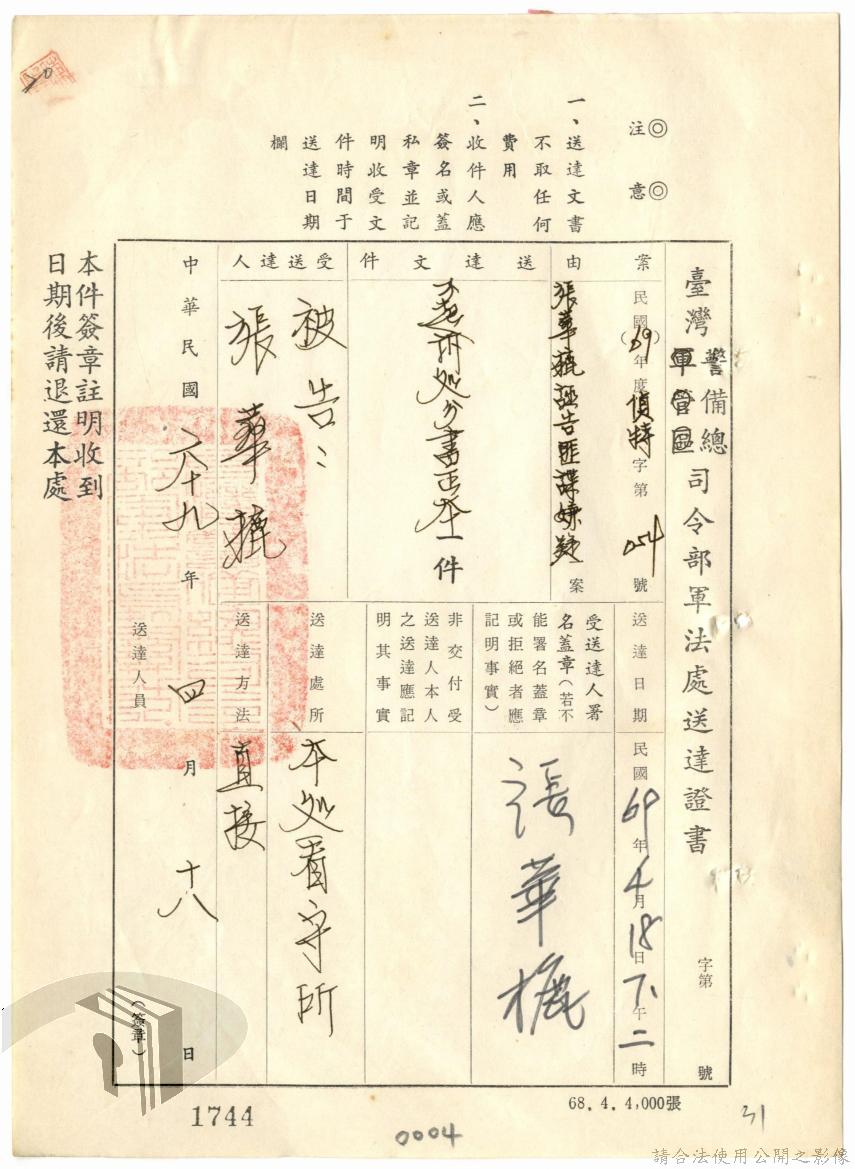 注意
一、送達文書
不取任何
費用
二、收件人應
簽名或蓋
私章並記
明收受文
件時間于
送達日期
欄
臺灣警備總司令部軍法處送達證書
軍管區
字第 號
案由
民國(69)年度偵特字第054號
張華 誣告匪諜嫌疑案
送達文件
不起訴処分書正本一件
受送達人
被告:
張華
送達日期
民國69年4月18日下午二時
受送達人署
名蓋章(若不
能署名蓋章
或拒絕者應
記明事實)
張華
非交付受
送達人本人
之送達應記
明其事實
送達處所
本処看守所
送達方法
直接
中華民國六十九年四月十八日
送達人員
(簽章)
本件簽章註明收到
日期後請退還本處
68.4.4,000張
1744
0004
31
請合法使用公開之影像